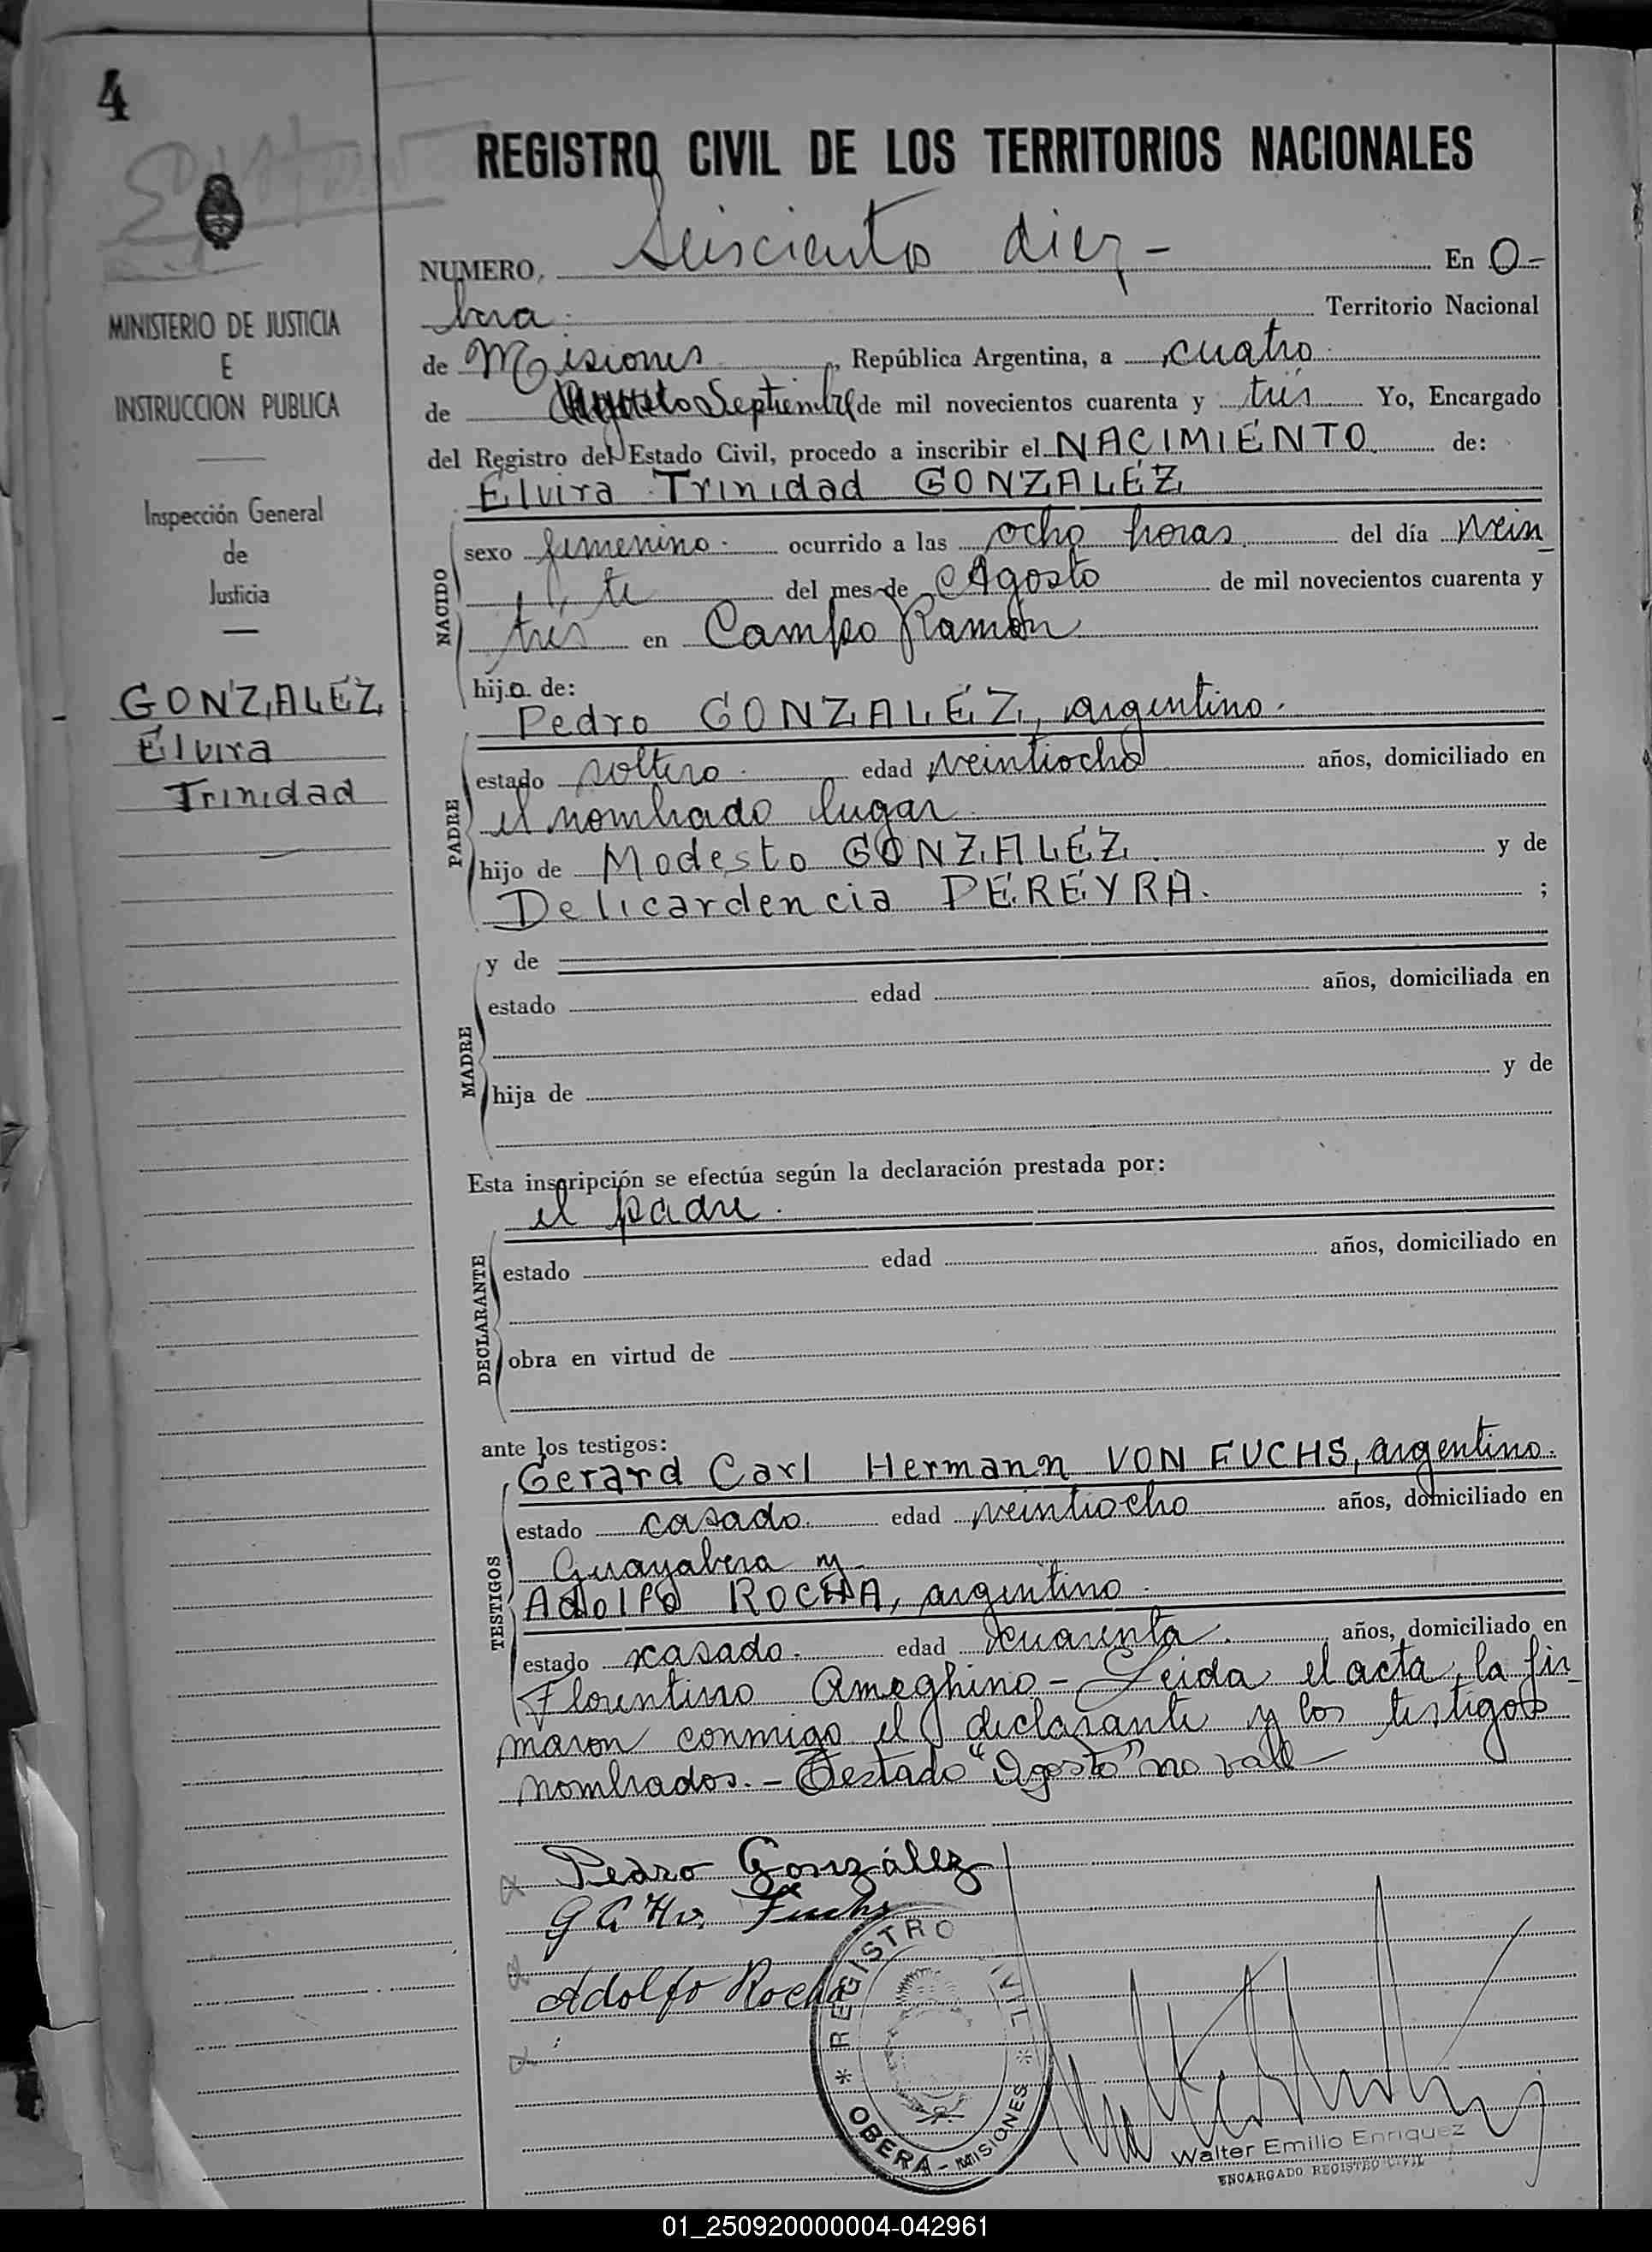 4
MINISTERIO DE JUSTICIA
E
INSTRUCCION PUBLICA
Inspección General
de
Justicia
GONZALEZ
Elvira
Trinidad
REGISTRO CIVIL DE LOS TERRITORIOS NACIONALES
NUMERO, Seiscientos diez - En O-
bera. Territorio Nacional
de Misiones, República Argentina, a cuatro
de Agosto Septiembre de mil novecientos cuarenta y tres Yo, Encargado
del Registro del Estado Civil, procedo a inscribir el NACIMIENTO de:
Elvira Trinidad GONZALEZ
NACIDO
sexo femenino. ocurrido a las ocho horas. del día vein
te del mes de Agosto de mil novecientos cuarenta y
tres en Campo Ramón
hija de:
Pedro GONZALEZ, argentino.
PADRE
estado soltero. edad veintiocho años, domiciliado en
el nombrado lugar
hijo de Modesto GONZALEZ. y de
Delicardencia PEREYRA. ;
MADRE
y de
estado edad años, domiciliada en
hija de y de
Esta inscripción se efectúa según la declaración prestada por:
el padre.
DECLARANTE
estado edad años, domiciliado en
obra en virtud de
ante los testigos:
Gerard Carl Hermann VON FUCHS, argentino.
TESTIGOS
estado casado. edad veintiocho años, domiciliado en
Guayabera y
Adolfo ROCHA, argentino.
estado casado. edad cuarenta. años, domiciliado en
Florentino Ameghino - Leida el acta, la fir
maron conmigo el declarante y los testigos
nombrados. - Testado "Agosto" no vale -
Pedro González
G C H v. Fuchs
Adolfo Rocha
REGISTRO CIVIL * OBERA - MISIONES *
Walter Emilio Enriquez
ENCARGADO REGISTRO CIVIL
01_250920000004-042961